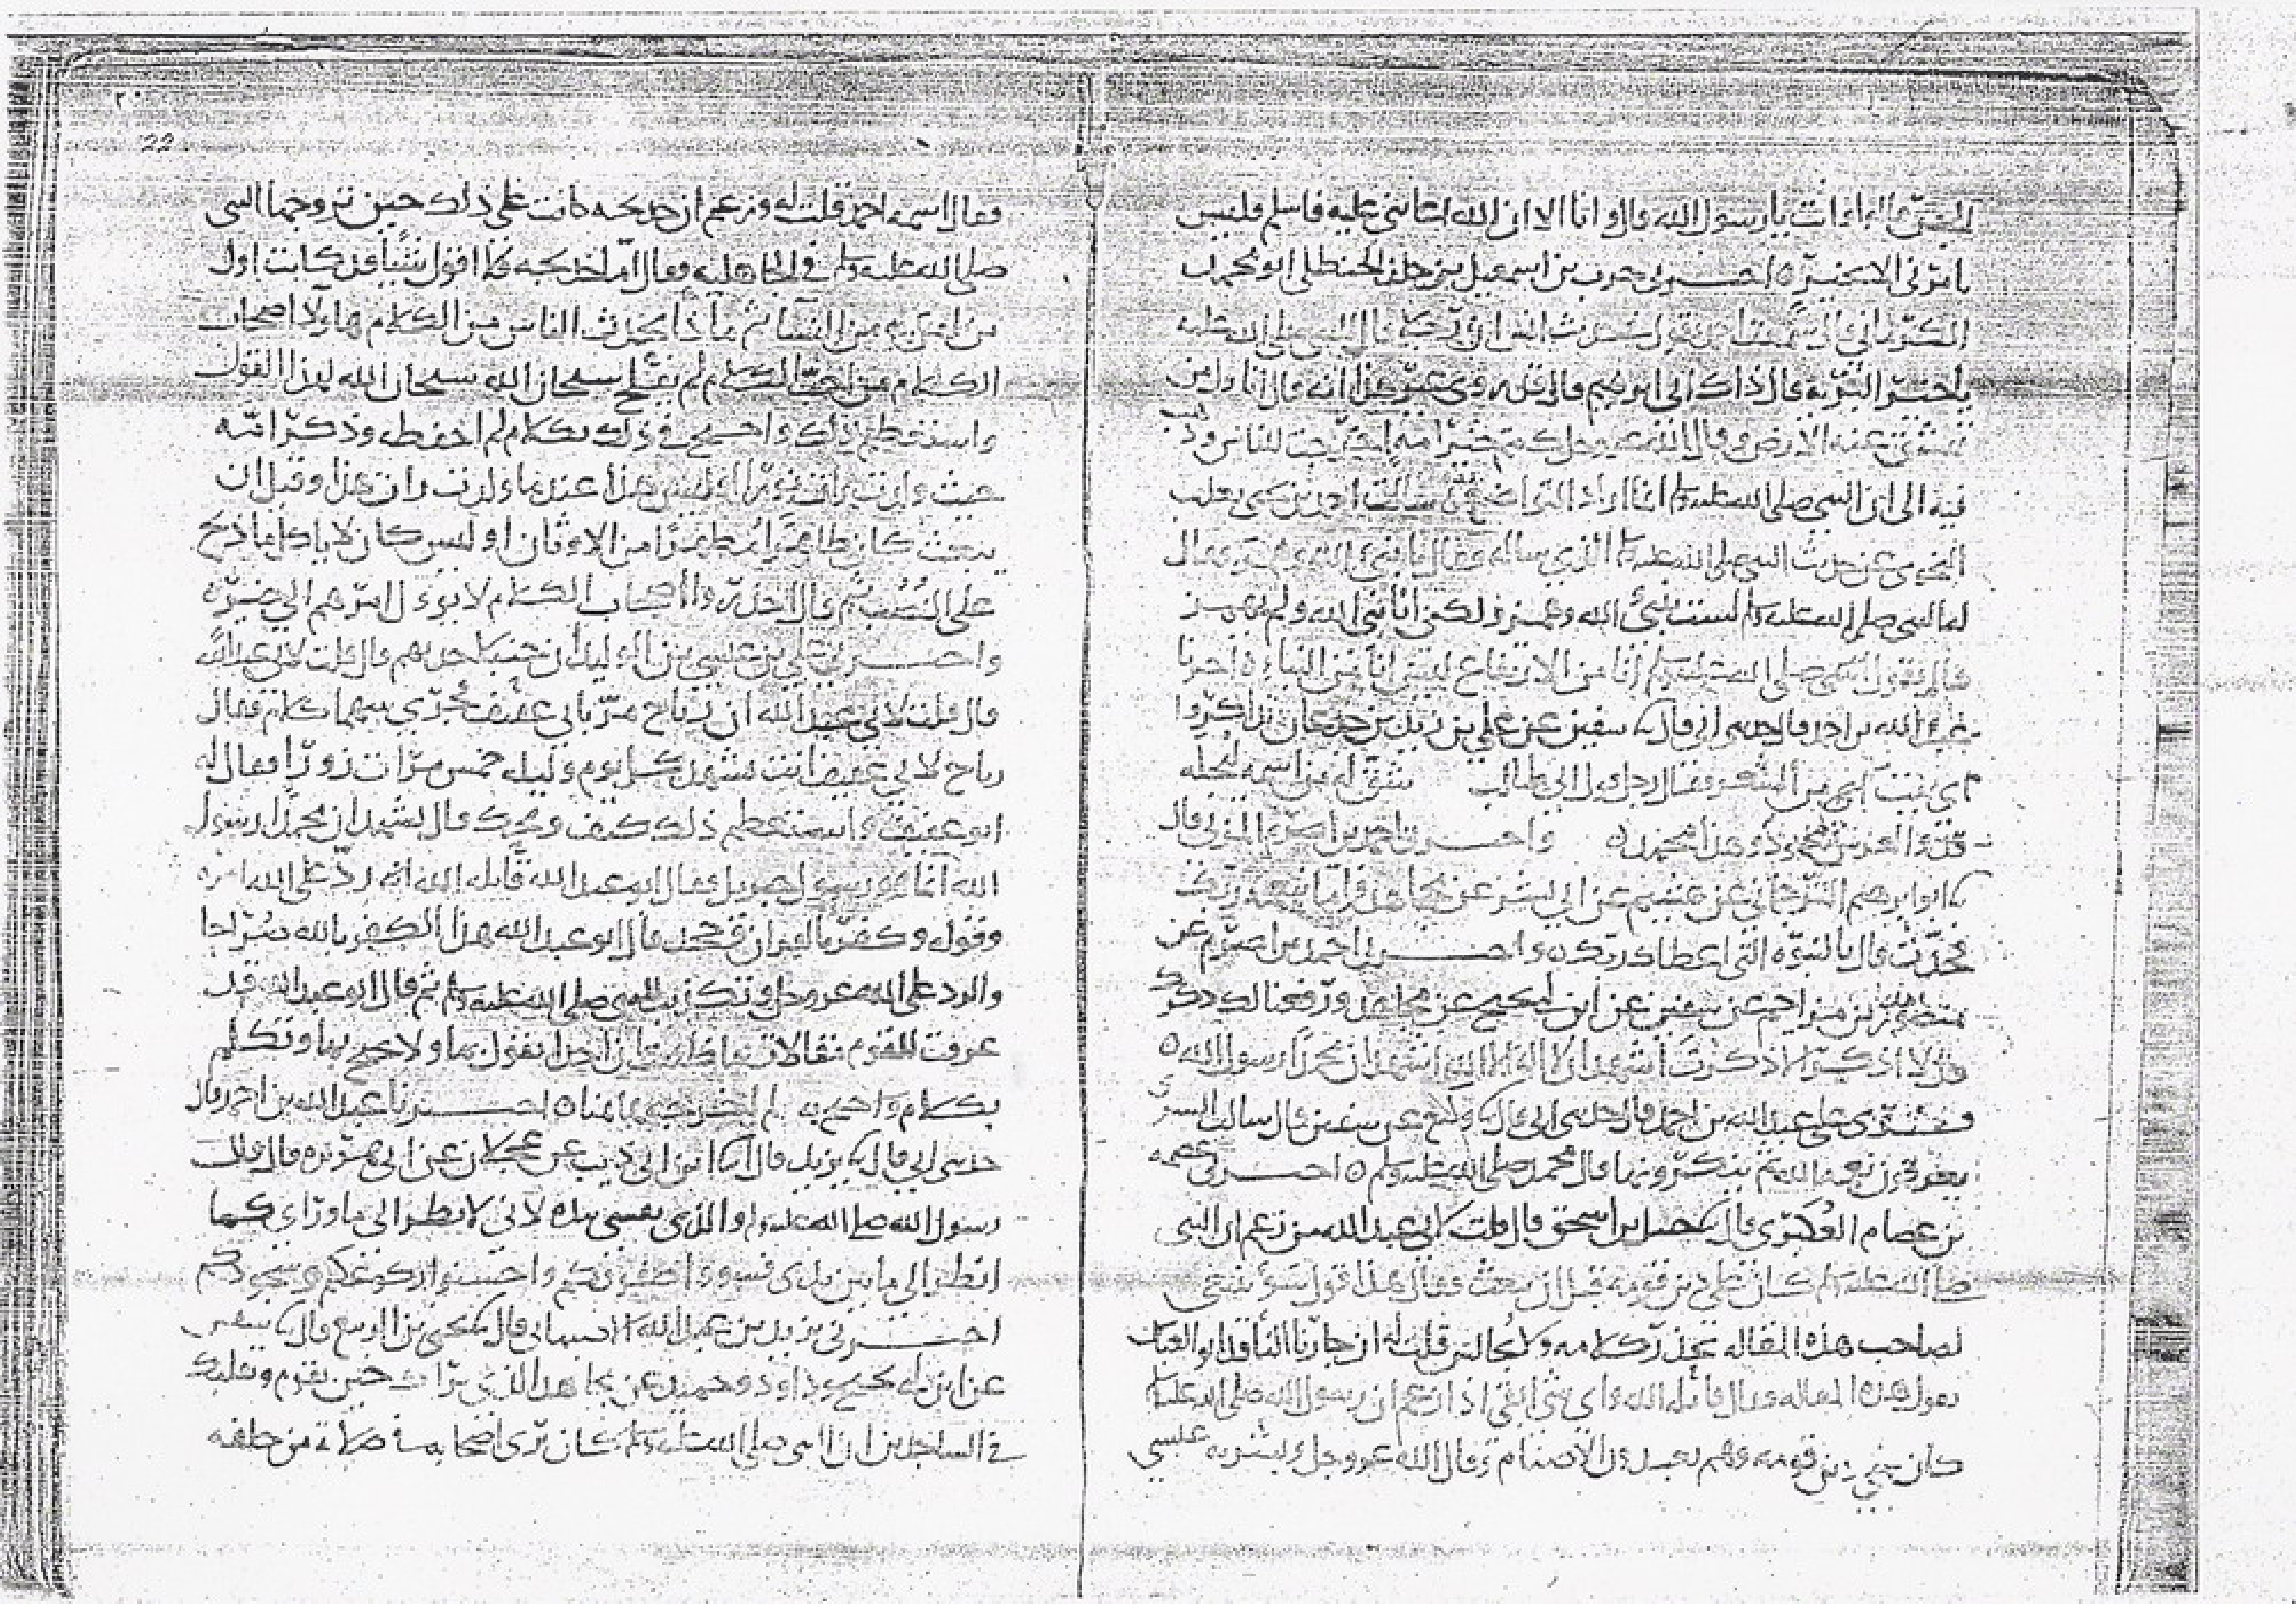 الجن قالوا وانت يا رسول الله قال وانا الا ان الله اعانني عليه فاسلم فليس
يامرني الا بخير ه اخبرني حرب بن اسمعيل بن خلف الحنظلي ابو محمد
الكرماني قال سمعت احمد يقول حديث انس ان رجلا قال للنبي صلى الله عليه
يا خير البرية قال ذاك ابي ابرهيم قال قد روى غير هذا انه قال انا اول من
تنشق عنه الارض وقال الله عز وجل كنتم خير امة اخرجت للناس وذهب
فيه الى ان النبي صلى الله عليه وسلم انما اراد التواضع سالت احمد بن يحيى ثعلب
النحوي عن حديث النبي صلى الله عليه وسلم الذي ساله فقال يا نبيء الله وهمز فقال
له النبي صلى الله عليه وسلم لست بنبيء الله وهمز ولكني انا نبي الله ولم يهمز
قال يقول النبي صلى الله عليه وسلم انا من الارتفاع ليس انا من النباء ه اخبرنا
عبد الله بن احمد قال حدثني ابي قال سفين عن علي بن زيد بن جدعان تذاكروا
اي بيت من الشعر فقال رجل قول ابي طالب شق له من اسمه ليجله
فذو العرش محمود وهذا محمد ه واخبرني احمد بن اصرم المزني قال
ابو ابرهيم الترجماني عن هشيم عن ابي بشر عن مجاهد واما بنعمة ربك
فحدث قال بالنبوة التي اعطاك ربك ه واخبرني احمد بن اصرم عن
منصور بن مزاحم عن سفين عن ابن ابي نجيح عن مجاهد ورفعنا لك ذكرك
قال لا اذكر الا ذكرت اشهد ان لا اله الا الله اشهد ان محمدا رسول الله ه
وقرى على عبد الله بن احمد قال حدثني ابي قال وكيع عن سفين قال سالت السدي
يعرفون نعمة الله ثم ينكرونها قال محمد صلى الله عليه وسلم ه اخبرني عصمة
بن عصام العكبري قال حنبل بن اسحق قال قلت لابي عبد الله من زعم ان النبي
صلى الله عليه وسلم كان على دين قومه قبل ان يبعث فقال هذا قول سوء ينبغي
لصاحب هذه المقالة تحذر كلامه ولا يجالس قلت له ان جارنا الناقد ابو العباس
يقول هذه المقالة قال قاتله الله واي شي ابقى اذا زعم ان رسول الله صلى الله عليه وسلم
كان على دين قومه وهم يعبدون الاصنام وقال الله عز وجل وبشر به عيسى
٢٠
22
فقال اسمه احمد قلت له وزعم ان خديجة كانت على ذلك حين تزوجها النبي
صلى الله عليه وسلم في الجاهلية فقال اما خديجة فلا اقول شيا قد كانت اول
من امن به من النسا ثم ماذا يحدث الناس من الكلام هاولا اصحاب
الكلام من احب الكلام لم يفلح سبحان الله سبحان الله لهذا القول
واستعظم ذلك واحتج في ذلك بكلام لم احفظه وذكر امه
حيث ولدت رات نورا اوليس هذا عندما ولدت رات هذا وقبل ان
يبعث كان طاهرا مطهرا من الاوثان اوليس كان لا ياكل ما ذبح
على النصب ثم قال احذروا اصحاب الكلام لا يوول امرهم الى خير ه
واخبرني علي بن عيسى بن الوليد ان حنبلا حدثهم قال قلت لابي عبد الله
قال قلت لابي عبد الله ان رباح مر بابي عفيف فجرى بينهما كلام فقال
رباح لابي عفيف انت تشهد كل يوم وليلة خمس مرات زورا فقال له
ابو عفيف واستعظم ذلك كيف ويحك قال تشهد ان محمدا رسول
الله انما هو رسول جبريل فقال ابو عبد الله قاتله الله انه رد على الله امره
وقوله وكفر بالقران فجحد قال ابو عبد الله هذا الكفر بالله صراحا
والرد على الله عز وجل وتكذيب للنبي صلى الله عليه وسلم ثم قال ابو عبد الله قد
عرفت للقوم مقالات ما ظننت ان احدا يقول بها ولا يحتج بها وتكلم
بكلام واحتج به لم اخرجه هاهنا ه اخبرنا عبد الله بن احمد قال
حدثني ابي قال يزيد قال انا ابن ابي ذيب عن عجلان عن ابي هريرة قال قال
رسول الله صلى الله عليه وسلم والذي نفسي بيده لاني لانظر الى ما وراي كما
انظر الى ما بين يدي فسووا صفوفكم واحسنوا ركوعكم وسجودكم
اخبرني يزيد بن عبد الله الاصبهاني قال يحيى بن الربيع قال سفين
عن ابن ابي نجيح وداود وحميد عن مجاهد الذي يراك حين تقوم وتقلبك
في الساجدين ان النبي صلى الله عليه وسلم كان يرى اصحابه في صلاته من خلفه